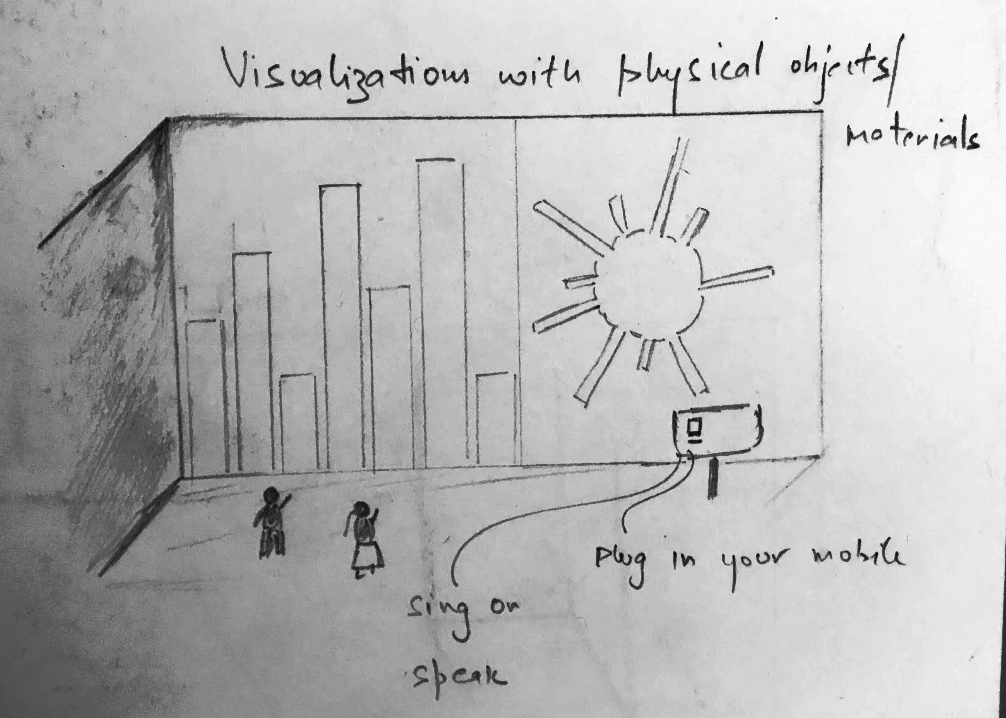 Visualizations with physical objects/
materials
plug in your mobile
sing or
speak